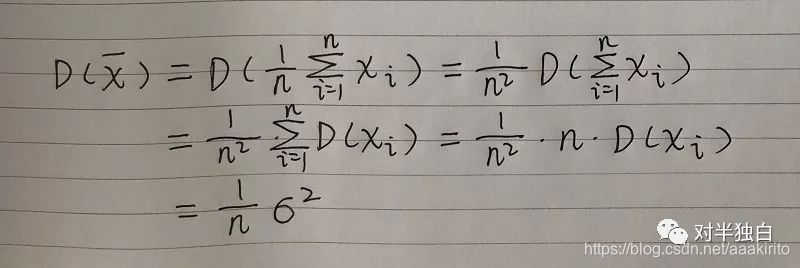 D(x̄) = D(1/n ∑_{i=1}^{n} x_i) = 1/n² D(∑_{i=1}^{n} x_i)
= 1/n² · ∑_{i=1}^{n} D(x_i) = 1/n² · n · D(x_i)
= 1/n σ²
对半独白
https://blog.csdn.net/aaakirito